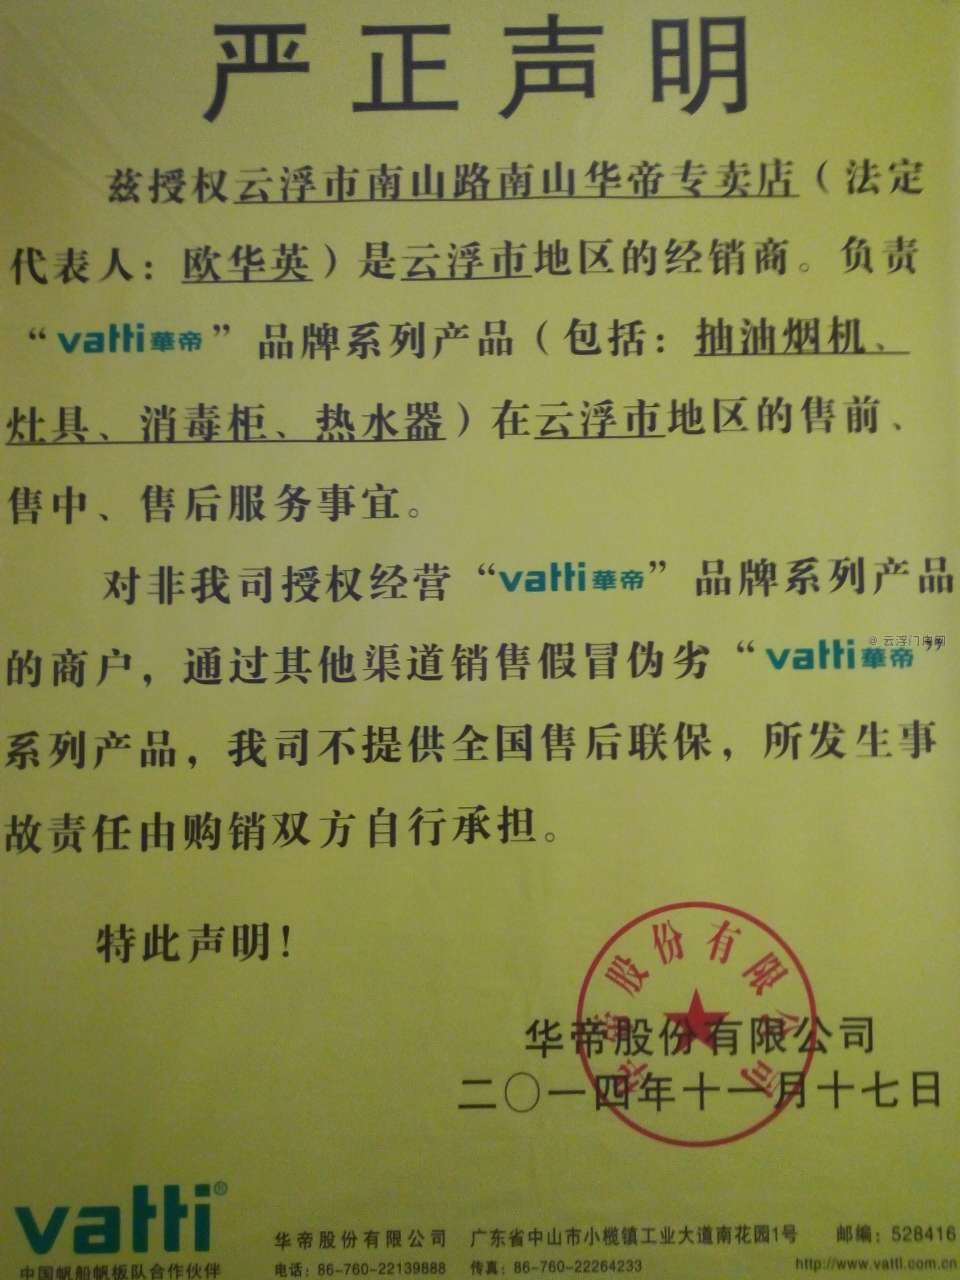 严正声明
兹授权云浮市南山路南山华帝专卖店（法定
代表人：欧华英）是云浮市地区的经销商。负责
“vatti華帝”品牌系列产品（包括：抽油烟机、
灶具、消毒柜、热水器）在云浮市地区的售前、
售中、售后服务事宜。
对非我司授权经营“vatti華帝”品牌系列产品
的商户，通过其他渠道销售假冒伪劣“vatti華帝”
@ 云浮门户网
系列产品，我司不提供全国售后联保，所发生事
故责任由购销双方自行承担。
特此声明！
华帝股份有限公司
华帝股份有限公司
二〇一四年十一月十七日
vatti®
中国帆船帆板队合作伙伴
华帝股份有限公司 广东省中山市小榄镇工业大道南花园1号 邮编：528416
电话：86-760-22139888 传真：86-760-22264233 http://www.vatti.com.cn